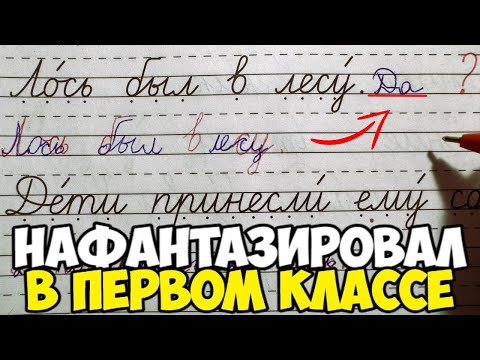 Ло́сь был в лесу́. Да ?
Лось был в лесу.
Де́ти принесли́ ему́ со
НАФАНТАЗИРОВАЛ
В ПЕРВОМ КЛАССЕ